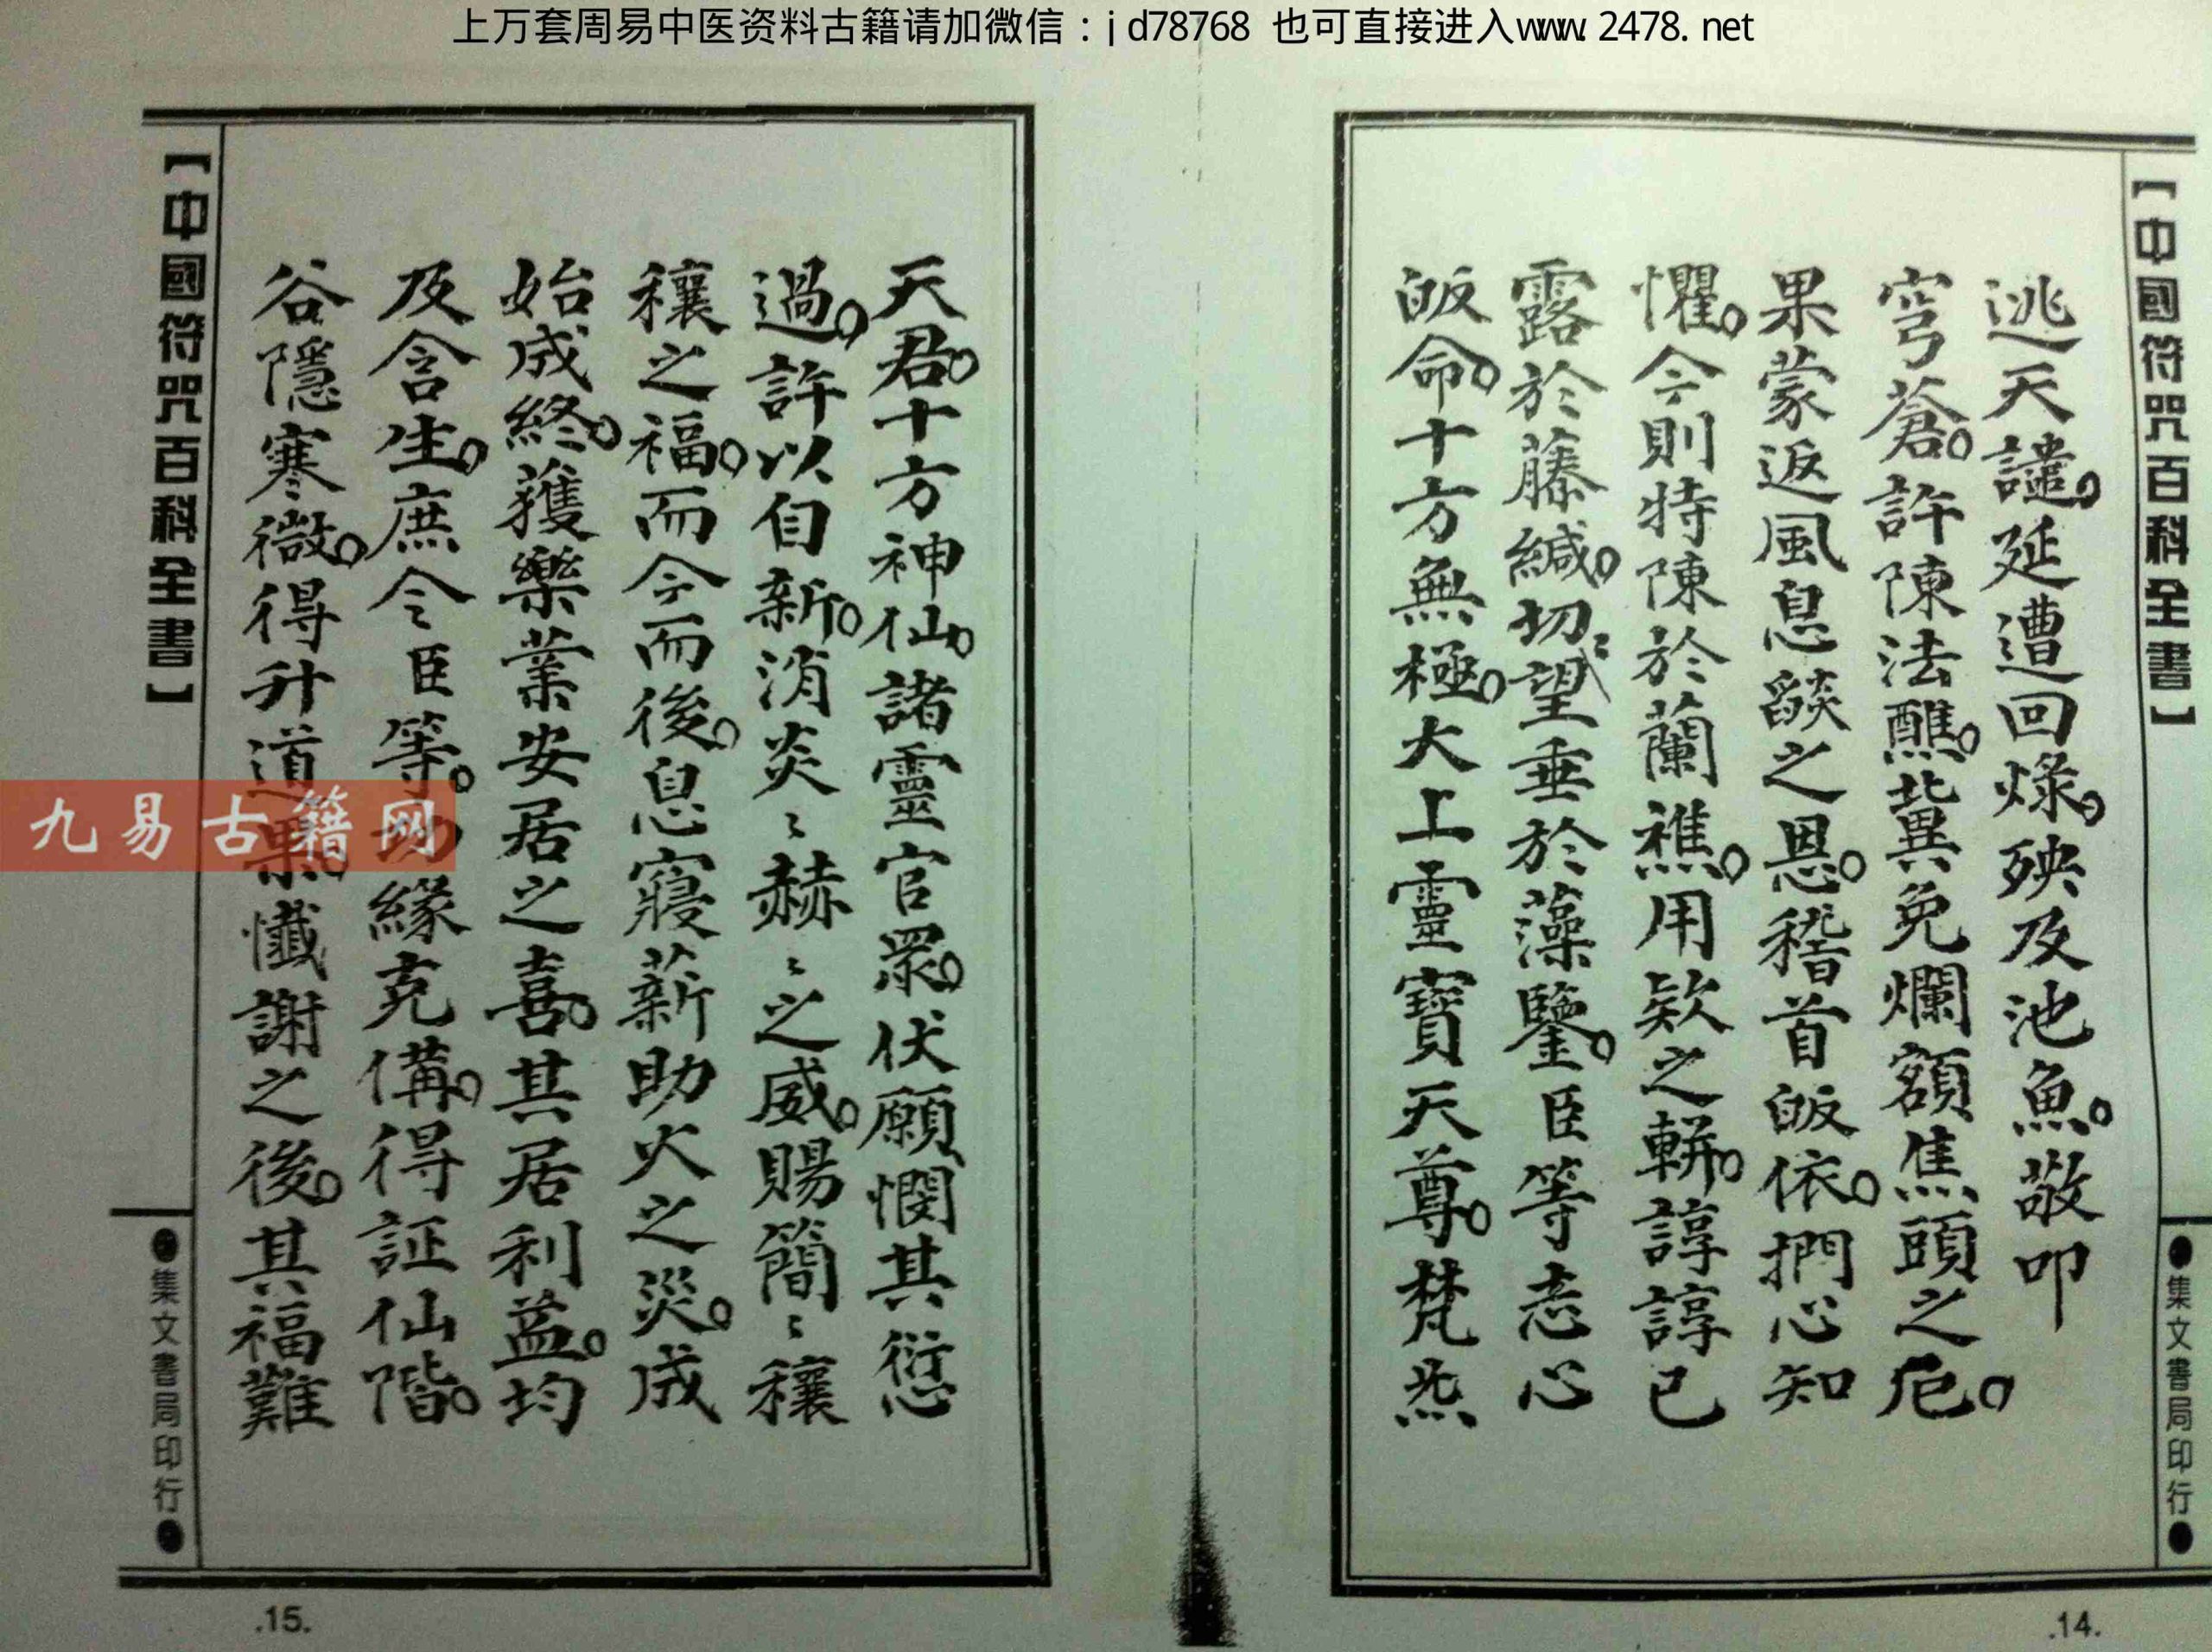 上万套周易中医资料古籍请加微信：jd78768 也可直接进入www.2478.net
【中國符咒百科全書】
●集文書局印行●
逃天譴。延遭回燦。殃及池魚。敬叩
穹蒼。許陳法醮。冀免爛額焦頭之厄。
果蒙返風息燄之恩。稽首皈依。捫心知
懼。今則特陳於蘭襍。用欵之軿。諄諄已
露於藤緘。切望垂於藻鑒。臣等恚心
皈命。十方無極。大上靈寶天尊。梵炁
.14.
天君。十方神仙。諸靈官眾。伏願憫其愆
過。許以自新。消炎〻赫〻之威。賜簡〻穰
穰之福。而今而後。息寢薪助火之災。成
始成終。獲樂業安居之喜。其居利益。均
及含生。庶令臣等。功緣克備。得証仙階。
谷隱寒微。得升道果。懺謝之後。其福難
【中國符咒百科全書】
●集文書局印行●
.15.
九易古籍网